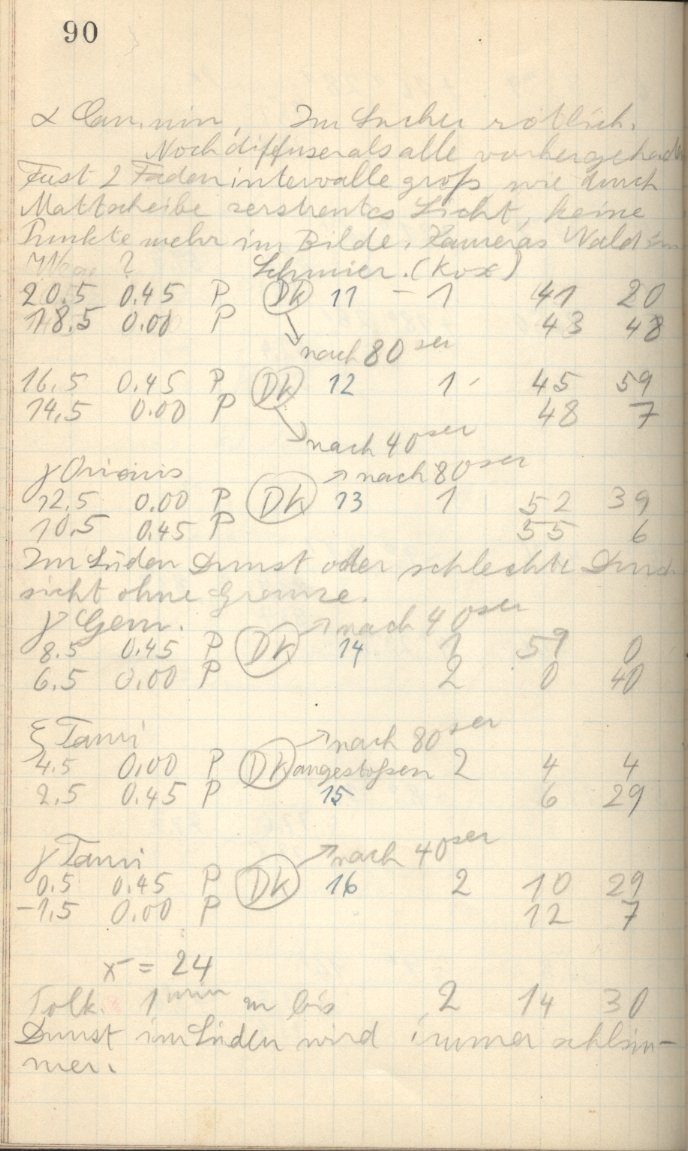 90
α Can. min, Im Sucher rötlich.
Noch diffuser als alle vorhergehend
Fast 2 Fadenintervalle groß wie durch
Mattscheibe zerstreutes Licht, keine
Punkte mehr im Bilde.
? Schmier.
20.5 0.45 P DK 11 – 1 41 20
18.5 0.00 P 43 48
nach 80ser
16.5 0.45 P DK 12 1 45 59
14.5 0.00 P 48 7
nach 40ser
γ Orionis nach 80ser
12.5 0.00 P DK 13 1 52 39
10.5 0.45 P 55 6
Im Süden Dunst oder schlechte Durch
sicht ohne Grenze.
γ Gem. nach 40ser
8.5 0.45 P DK 14 1 59 0
6.5 0.00 P 2 0 40
ξ Tauri nach 80ser
4.5 0.00 P DK angestoßen 2 4 4
2.5 0.45 P 15 6 29
γ Tauri nach 40ser
0.5 0.45 P DK 16 2 10 29
-1.5 0.00 P 12 7
= 24
1 min bis 2 14 30
Dunst im Süden wird immer schlim-
mer.